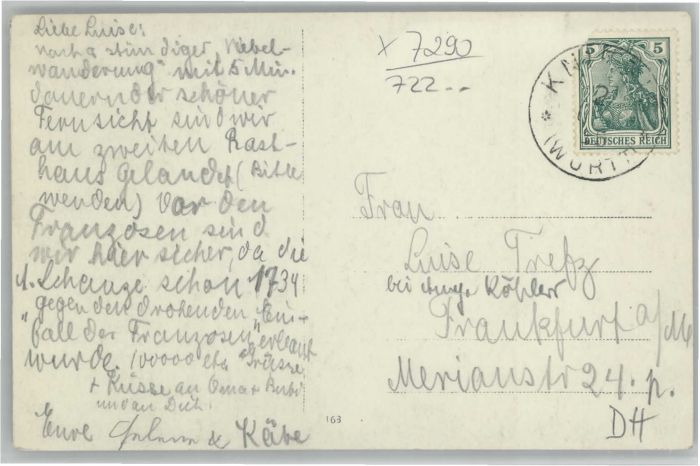 Liebe Luise!
nach 9 stündiger "Nebel-
wanderung" mit 5 Min.
dauernder schöner
Fernsicht sind wir
am zweiten Rast-
haus gelandet (Bitte
wenden) Vor den
Franzosen sind
wir hier sicher, da die
Schanze schon 1734
gegen den drohenden "Ein-
fall der Franzosen" erbaut
wurde. 100000 etc Grüsse
+ Küsse an Oma + Bubi
und an Dich.
Eure & Käbe
x 7290
722--
5 5
DEUTSCHES REICH
KNIE
(WÜRTT
Frau
Luise Trefz
bei Köhler
Frankfurt a/M
Merianstr 24. p.
DH
163